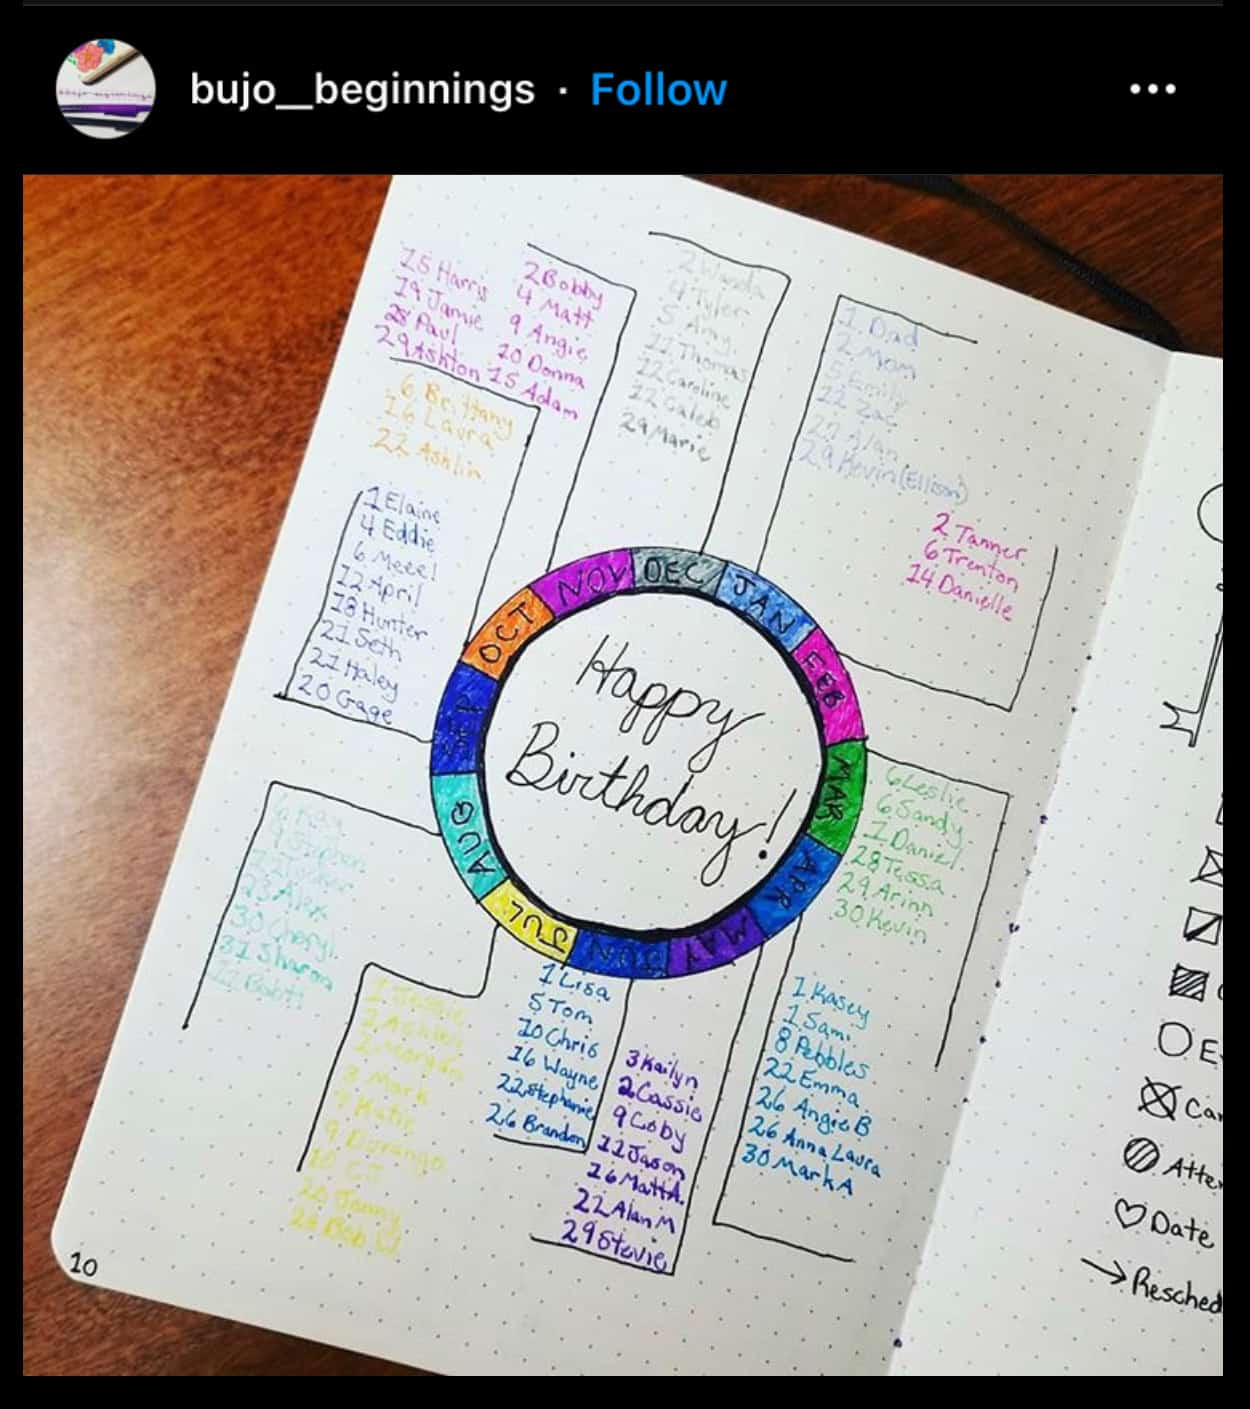 bujo__beginnings · Follow
15 Harris
19 Jamie
28 Paul
29 Ashton
2 Bobby
4 Matt
9 Angie
10 Donna
15 Adam
2 Wanda
4 Tyler
5 Amy
11 Thomas
12 Caroline
12 Caleb
29 Marie
1 Dad
2 Mom
5 Emily
22 Zac
27 Alan
29 Kevin (Ellison)
6 Brittany
16 Laura
22 Ashlin
2 Tanner
6 Trenton
14 Danielle
1 Elaine
4 Eddie
6
12 April
18 Hunter
21 Seth
21 Haley
20 Gage
NOV
DEC
JAN
OCT
FEB
SEP
MAR
AUG
APR
JUL
JUN
MAY
Happy
Birthday!
6 Leslie
6 Sandy
1 Daniel
28 Tessa
29 Arinn
30 Kevin
6 Kay
9 Stephen
12 Tucker
23 Alex
30 Cheryl
31 Sharon
1 Jessie
1 Ashley
2 Morgan
3 Mark
7 Katie
9 Durango
10 CJ
20 Jonny
28 Bob W
1 Lisa
5 Tom
10 Chris
16 Wayne
22 Stephanie
26 Brandon
3 Kailyn
2 Cassie
9 Coby
11 Jason
16 Matt A.
22 Alan M
29 Stevie
1 Kasey
1 Sami
8 Pebbles
22 Emma
26 Angie B
26 Anna Laura
30 Mark A
10
E
Can
Atte
Date
Resched